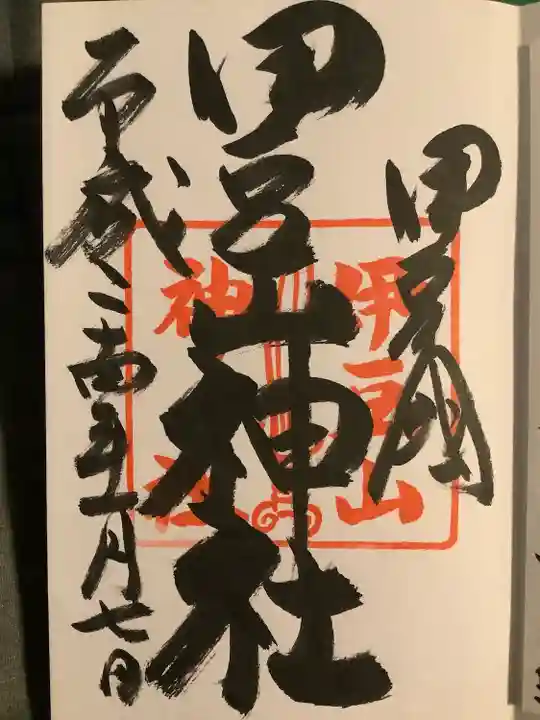 伊豆国
伊豆山神社
平成二十四年一月七日
伊豆山
神社